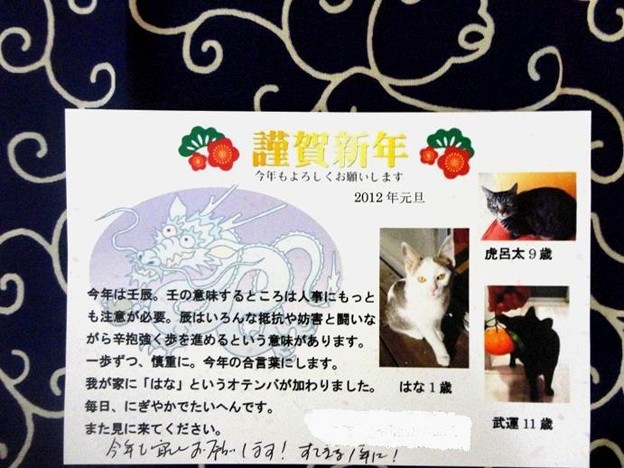 謹賀新年
今年もよろしくお願いします
2012年元旦
虎呂太9歳
今年は壬辰。壬の意味するところは人事にもっと
も注意が必要。辰はいろんな抵抗や妨害と闘いな
がら辛抱強く歩を進めるという意味があります。
一歩ずつ、慎重に。今年の合言葉にします。
我が家に「はな」というオテンバが加わりました。
毎日、にぎやかでたいへんです。
また見に来てください。
はな1歳
武運11歳
今年も宜しくお願いします!すてきな1年に!